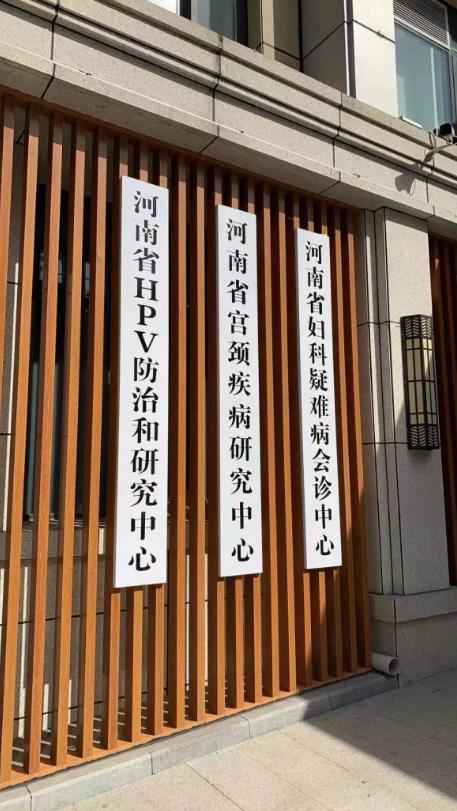 河南省HPV防治和研究中心
河南省宫颈疾病研究中心
河南省妇科疑难病会诊中心